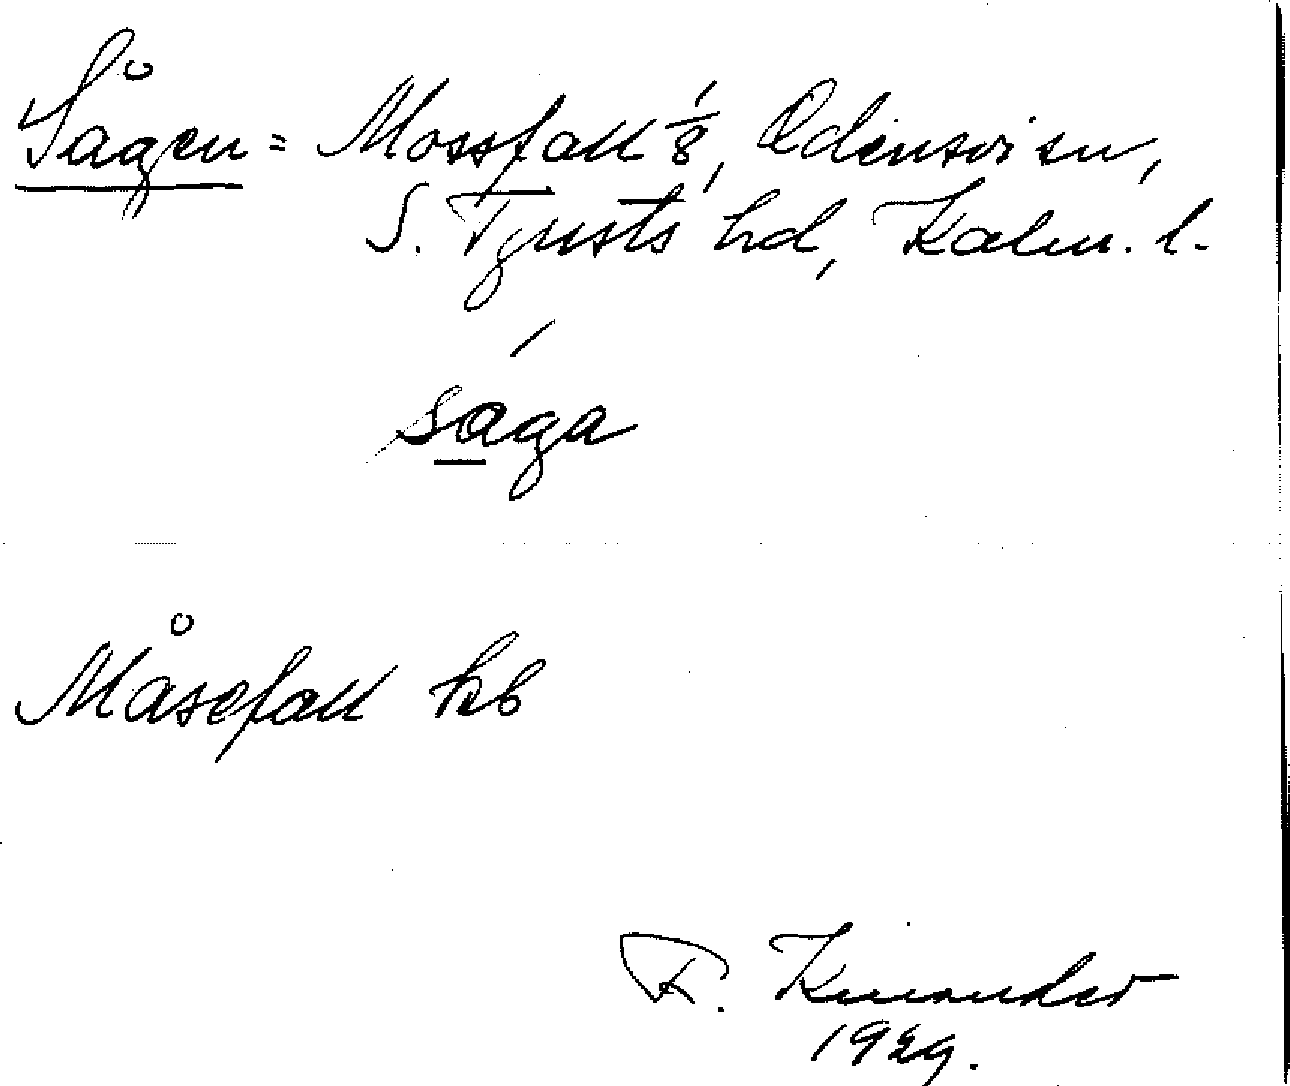 Sågen = Mossfall 1/8, Odensvi sn,
S. Tjusts hd, Kalm. l.
sága
Måsefall kb
R. Kinander
1929.